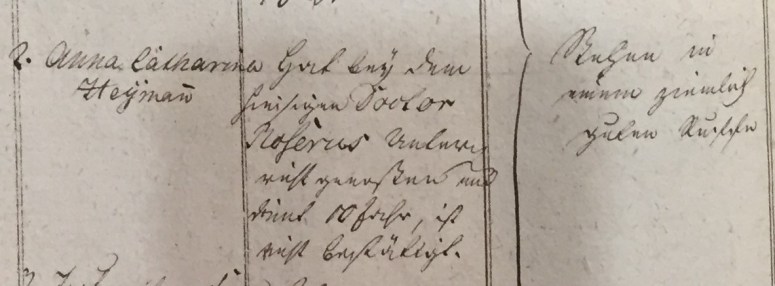 2. Anna Catharina
Heÿman̄
Hat beÿ dem
hiesigen Doctor
Noserus Unter
richt genoßen und
dient 10 Jahr, ist
nicht bestätigt.
Stehen in
einem ziemlich
guten Ruffe